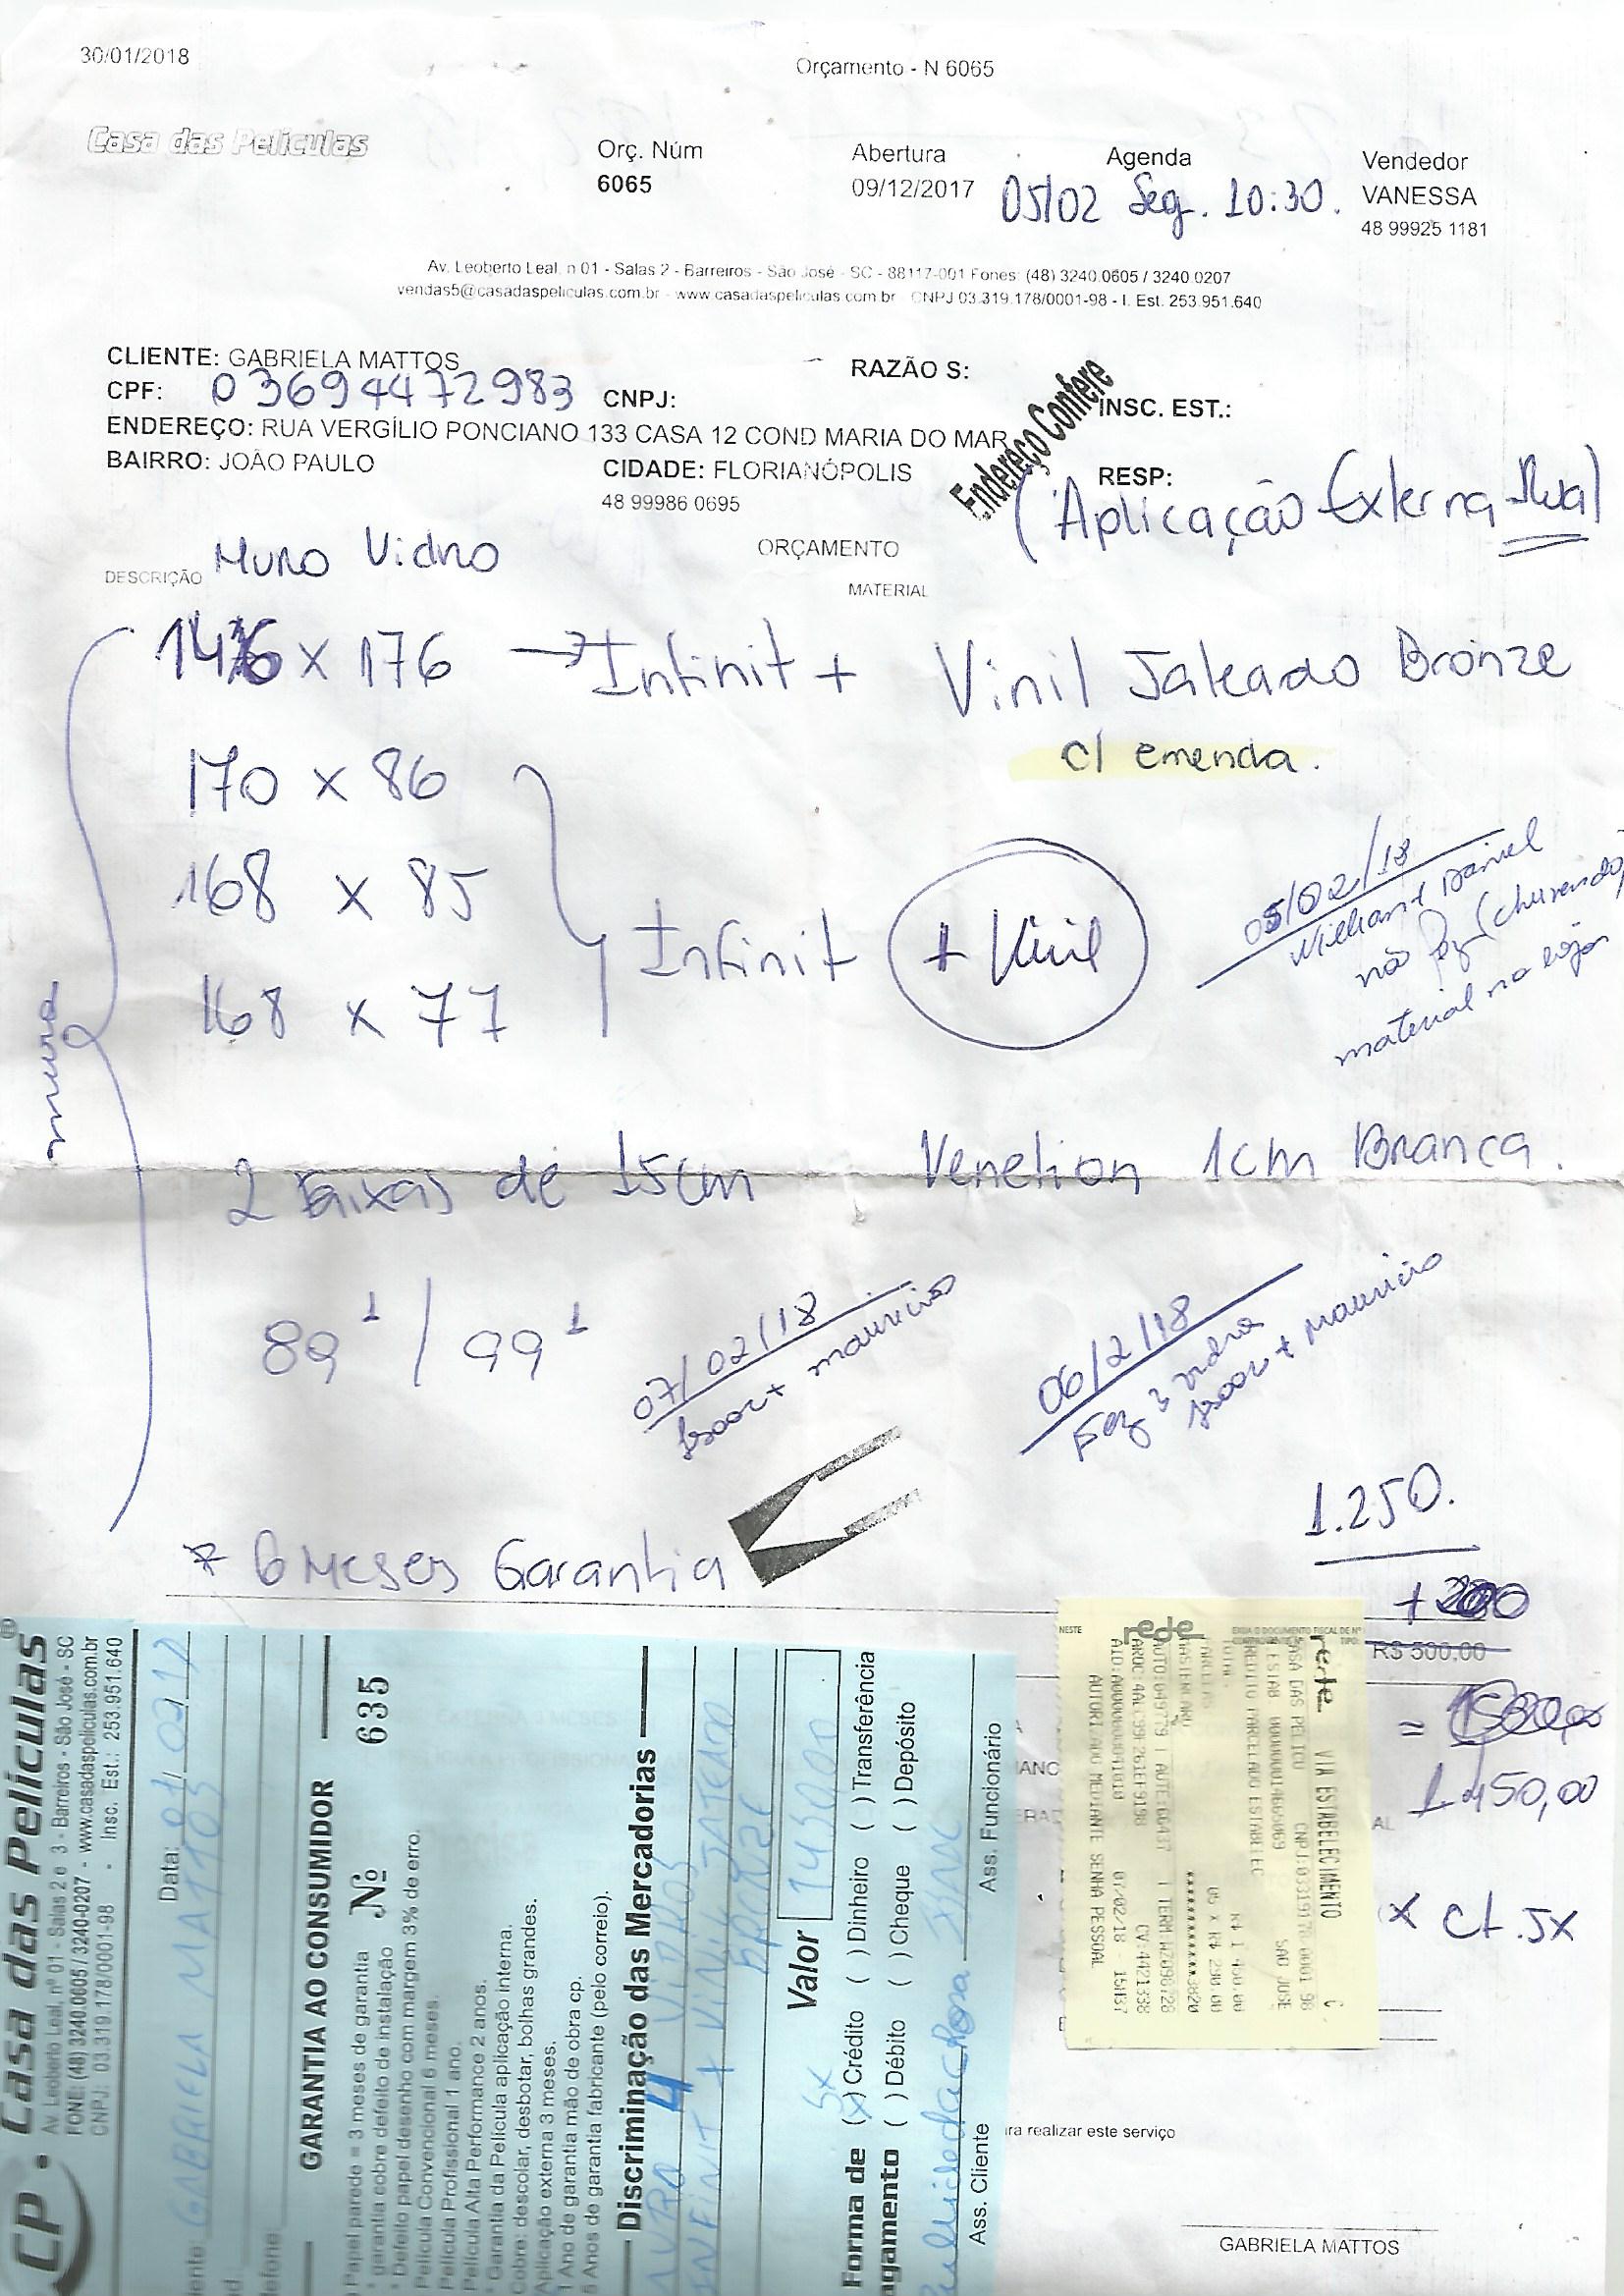 30/01/2018
Orçamento - N 6065
Casa das Películas
Orç. Núm
6065
Abertura
09/12/2017
Agenda
05/02 Seg. 10:30.
Vendedor
VANESSA
48 99925 1181
Av. Leoberto Leal, n 01 - Salas 2 - Barreiros - São José - SC - 88117-001 Fones: (48) 3240.0605 / 3240.0207
vendas5@casadaspeliculas.com.br - www.casadaspeliculas.com.br CNPJ 03.319.178/0001-98 - I. Est. 253.951.640
CLIENTE: GABRIELA MATTOS
RAZÃO S:
CPF: 03694472983 CNPJ:
INSC. EST.:
ENDEREÇO: RUA VERGÍLIO PONCIANO 133 CASA 12 COND MARIA DO MAR
BAIRRO: JOÃO PAULO
CIDADE: FLORIANÓPOLIS
RESP:
48 99986 0695
Endereço Confere
(Aplicação Externa Rua)
Muro Vidro
ORÇAMENTO
DESCRIÇÃO
MATERIAL
146 x 176 → Infinit + Vinil Jateado Bronze
c/ emenda.
170 x 86
168 x 85
168 x 77
Infinit + Vinil
muro
05/02/18
Willian + Daniel
não fez (chovendo)
material na loja
2 faixas de 15cm Venetion 1cm Branca.
89¹ / 99¹
07/02/18
Isaac + mauricio
06/2/18
Fez 3 vidro
Isaac + Mauricio
* 6 Meses Garantia
1.250.
+200
R$ 500,00
=
1.450,00
x Ct. 5x
CP. Casa das Películas®
Av. Leoberto Leal, nº 01 - Salas 2 e 3 - Barreiros - São José - SC
FONE: (48) 3240.0605 / 3240-0207 - www.casadaspeliculas.com.br
CNPJ: 03.319.178/0001-98 - Insc. Est.: 253.951.640
Data:
GABRIELA MATTOS
GARANTIA AO CONSUMIDOR Nº 635
Papel parede = 3 meses de garantia
* garantia cobre defeito de instalação
* Defeito papel desenho com margem 3% de erro.
Película Convencional 6 meses.
Película Profissional 1 ano.
Película Alta Performance 2 anos.
* Garantia da Película aplicação interna.
Cobre: descolar, desbotar, bolhas grandes.
Aplicação externa 3 meses.
1 Ano de garantia mão de obra cp.
5 Anos de garantia fabricante (pelo correio).
Discriminação das Mercadorias
MURO 4 VIDROS
INFINIT + VINIL JATEADO
BRONZE
Valor 1450,00
5x
Forma de (x) Crédito ( ) Dinheiro ( ) Transferência
agamento ( ) Débito ( ) Cheque ( ) Depósito
Ass. Cliente
Ass. Funcionário
rede VIA ESTABELECIMENTO
CNPJ:03319178/0001-98
SAO JOSE
CREDITO PARCELADO ESTABELEC
R$ 1.450,00
05 X R$ 290,00
************3820
07/02/18 - 15H37
AUTORIZADO MEDIANTE SENHA PESSOAL
rede
ra realizar este serviço
GABRIELA MATTOS